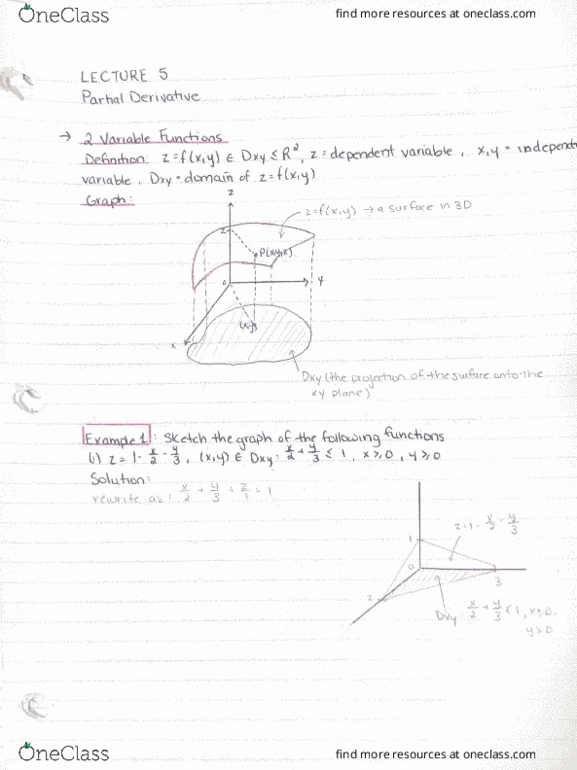 OneClass
find more resources at oneclass.com
LECTURE 5
Partial Derivative
→ 2 Variable Functions
Definition z=f(x,y) ∈ Dxy ≤ R², z = dependent variable, x,y = independ
variable, Dxy = domain of z=f(x,y)
Graph:
z
z=f(x,y) → a surface in 3D
z
P(x,y,z)
0
y
(x,y)
x
Dxy (the projection of the surface onto the
xy plane)
Example 1: Sketch the graph of the following functions
(i) z = 1 - x/2 - y/3, (x,y) ∈ Dxy: x/2 + y/3 ≤ 1, x≥0, y≥0
Solution:
rewrite as: x/2 + y/3 + z/1 = 1
z=1- x/2 - y/3
1
0
3
2
Dxy: x/2 + y/3 ≤ 1, x≥0,
y≥0
OneClass
find more resources at oneclass.com